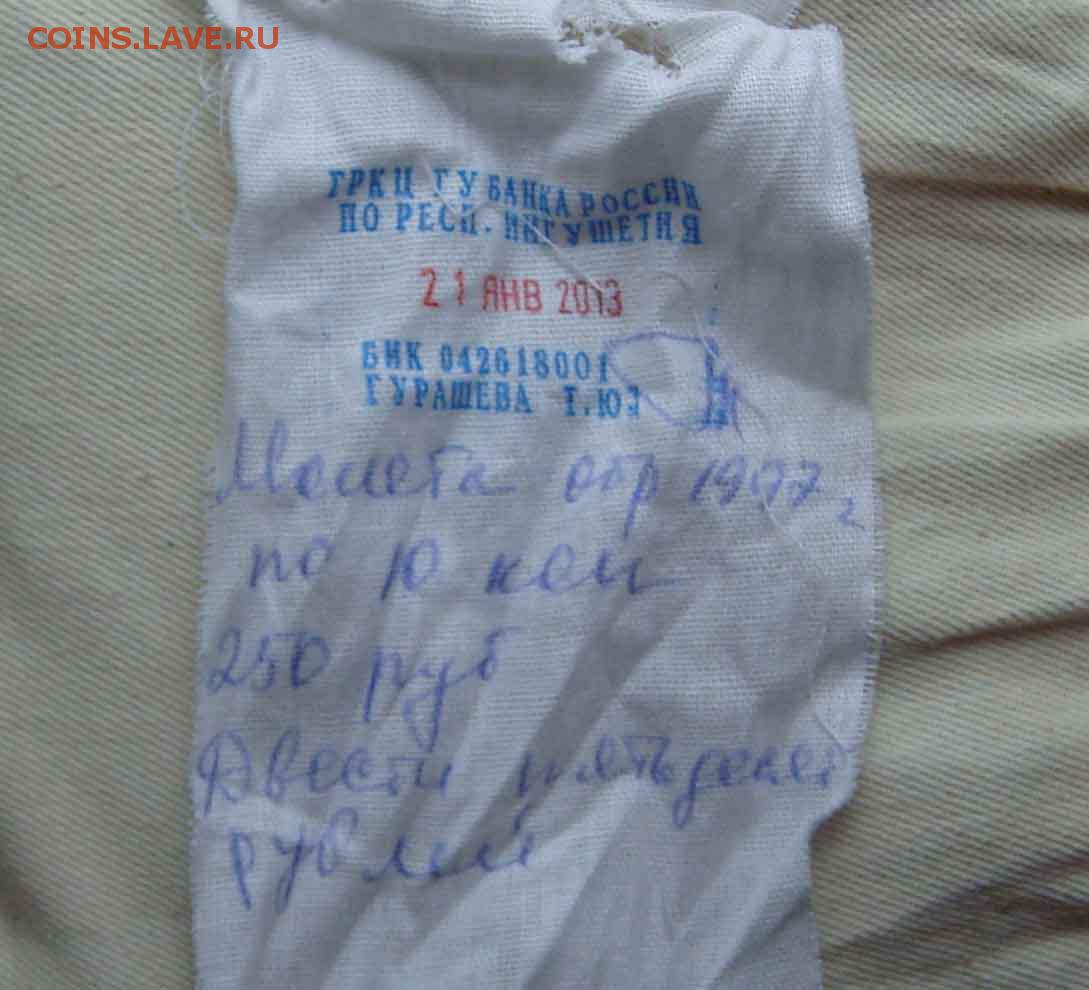 COINS.LAVE.RU
ГРКЦ ГУ БАНКА РОССИИ
ПО РЕСП. ИНГУШЕТИЯ
21 ЯНВ 2013
БИК 042618001
ГУРАШЕВА Т.Ю
Монета обр 1997г
по 10 коп
250 руб
Двести пятьдесят
рублей